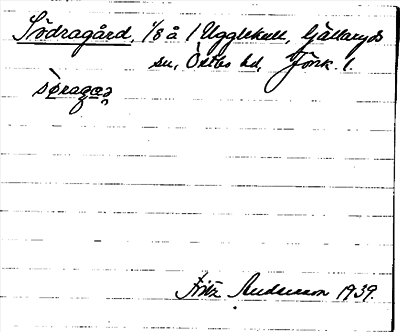 Södragård, 1/8 å 1 Ugglekull, Gällaryds
sn, Östbo hd, Jönk. l.
Fritz Andersson 1939.